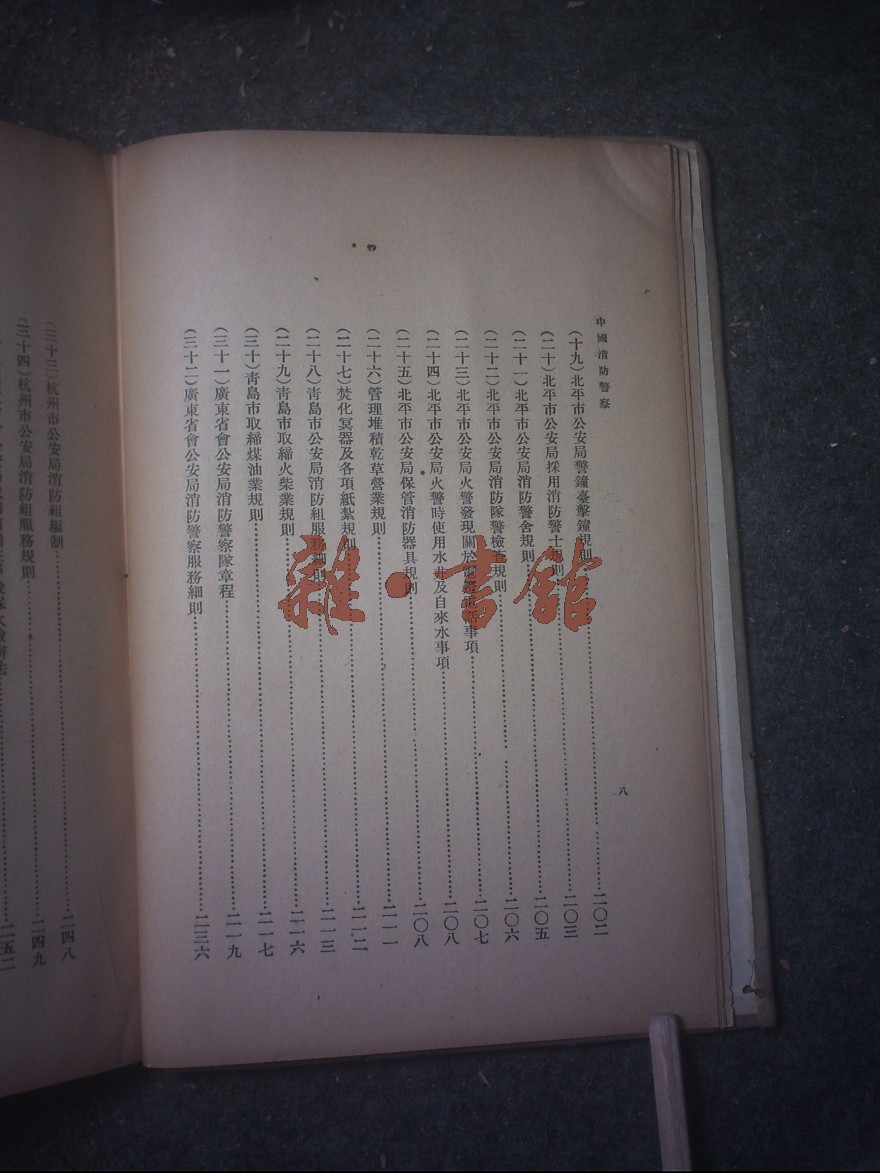 中國消防警察
八
(十九)北平市公安局警鐘臺擊鐘規則……二〇二
(二十)北平市公安局採用消防警士規則……二〇三
(二十一)北平市公安局消防警舍規則……二〇五
(二十二)北平市公安局消防隊警檢查規則……二〇六
(二十三)北平市公安局火警發現關於電燈電話事項……二〇七
(二十四)北平市公安局火警時使用水井及自來水事項……二〇八
(二十五)北平市公安局保管消防器具規則……二〇八
(二十六)管理堆積乾草營業規則……二一一
(二十七)焚化冥器及各項紙紮規則……二一二
(二十八)青島市公安局消防組服務細則……二一三
(二十九)青島市取締火柴業規則……二一六
(三十)青島市取締煤油業規則……二一七
(三十一)廣東省會公安局消防警察隊章程……二一九
(三十二)廣東省會公安局消防警察服務細則……二三六
(三十三)杭州市公安局消防組編制……二四八
(三十四)杭州市公安局消防組服務規則……二四九
二五二
雜·書館